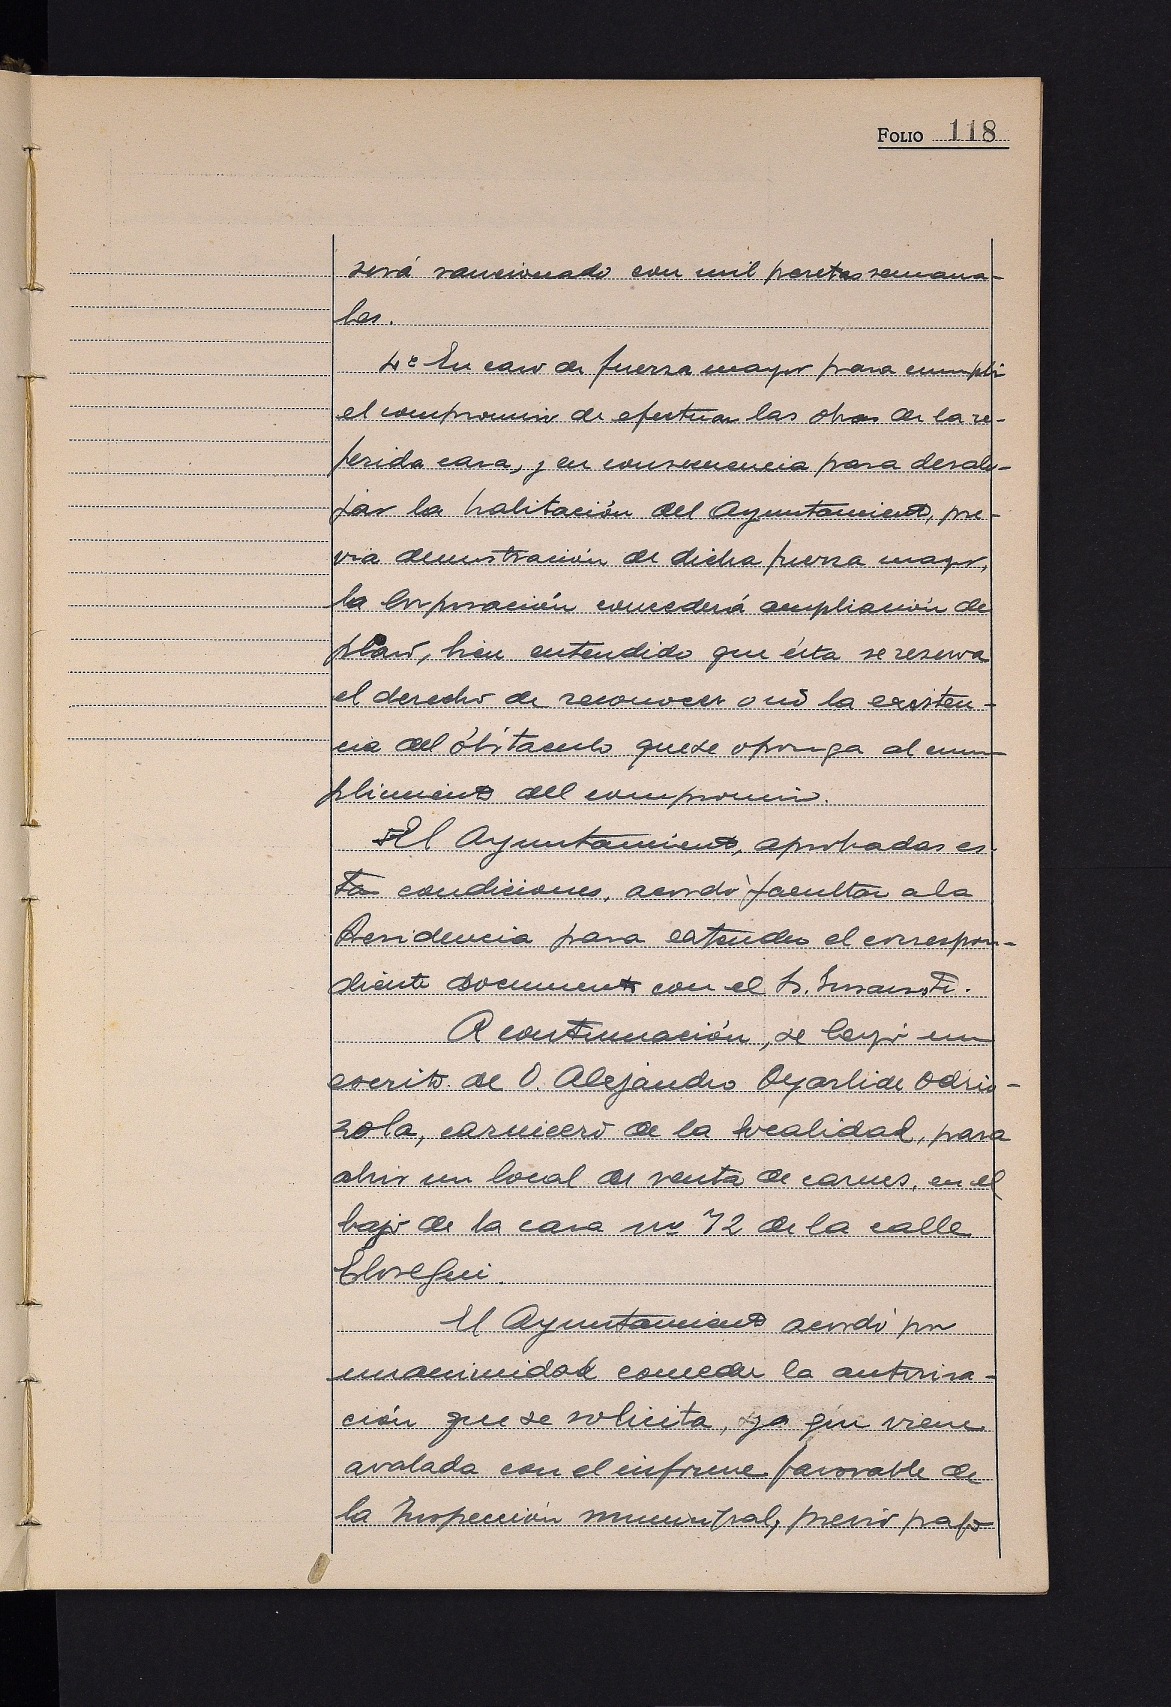 FOLIO 118
será sancionado con mil pesetas semana-
les.
4º En caso de fuerza mayor para cumplir
el compromiso de efectuar las obras de la re-
ferida casa, y en consecuencia para desalo-
jar la habitación del Ayuntamiento, pre-
via demostración de dicha fuerza mayor,
la Corporación concederá ampliación de
plazo, bien entendido que ésta se reserva
el derecho de reconocer o nó la existen-
cia del óbstaculo que se oponga al cum
plimiento del compromiso.
El Ayuntamiento, aprobadas es-
tas condiciones, acordó facultar a la
Presidencia para extender el correspon-
diente documento con el Sr.
A continuación, se leyó un
escrito de D. Alejandro Oyarbide Odrio-
zola, carnicero de la localidad, para
abrir un local de venta de carnes, en el
bajo de la casa nº 72 de la calle
Elosegui.
El Ayuntamiento acordó por
unanimidad conceder la autoriza-
ción que se solicita, ya que viene
avalada con el informe favorable de
la Inspección municipal, previo pago